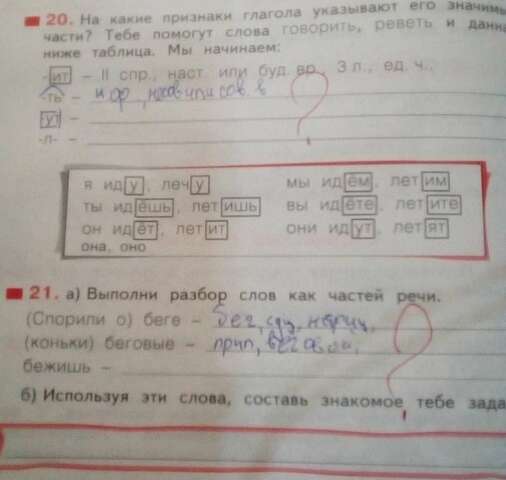 20. На какие признаки глагола указывают его значимы
части? Тебе помогут слова говорить, реветь и данн
ниже таблица. Мы начинаем:
-ит – II спр., наст. или буд. вр., 3 л., ед. ч.,
-ть –
ут –
-л- –
?
я иду, лечу мы идём, летим
ты идёшь, летишь вы идёте, летите
он идёт, летит они идут, летят
она, оно
21. а) Выполни разбор слов как частей речи.
(Спорили о) беге – бег, сущ, нариц,
(коньки) беговые – прил,
бежишь –
?
б) Используя эти слова, составь знакомое тебе зада